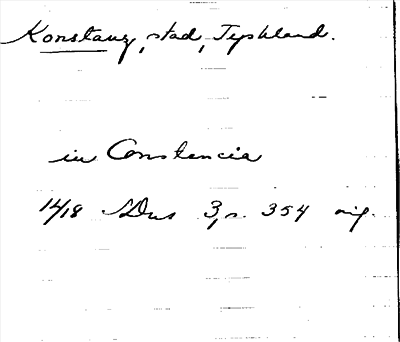 Konstanz, stad, Tyskland.
in Constencia
14/18 SDns 3, s. 354 orig.